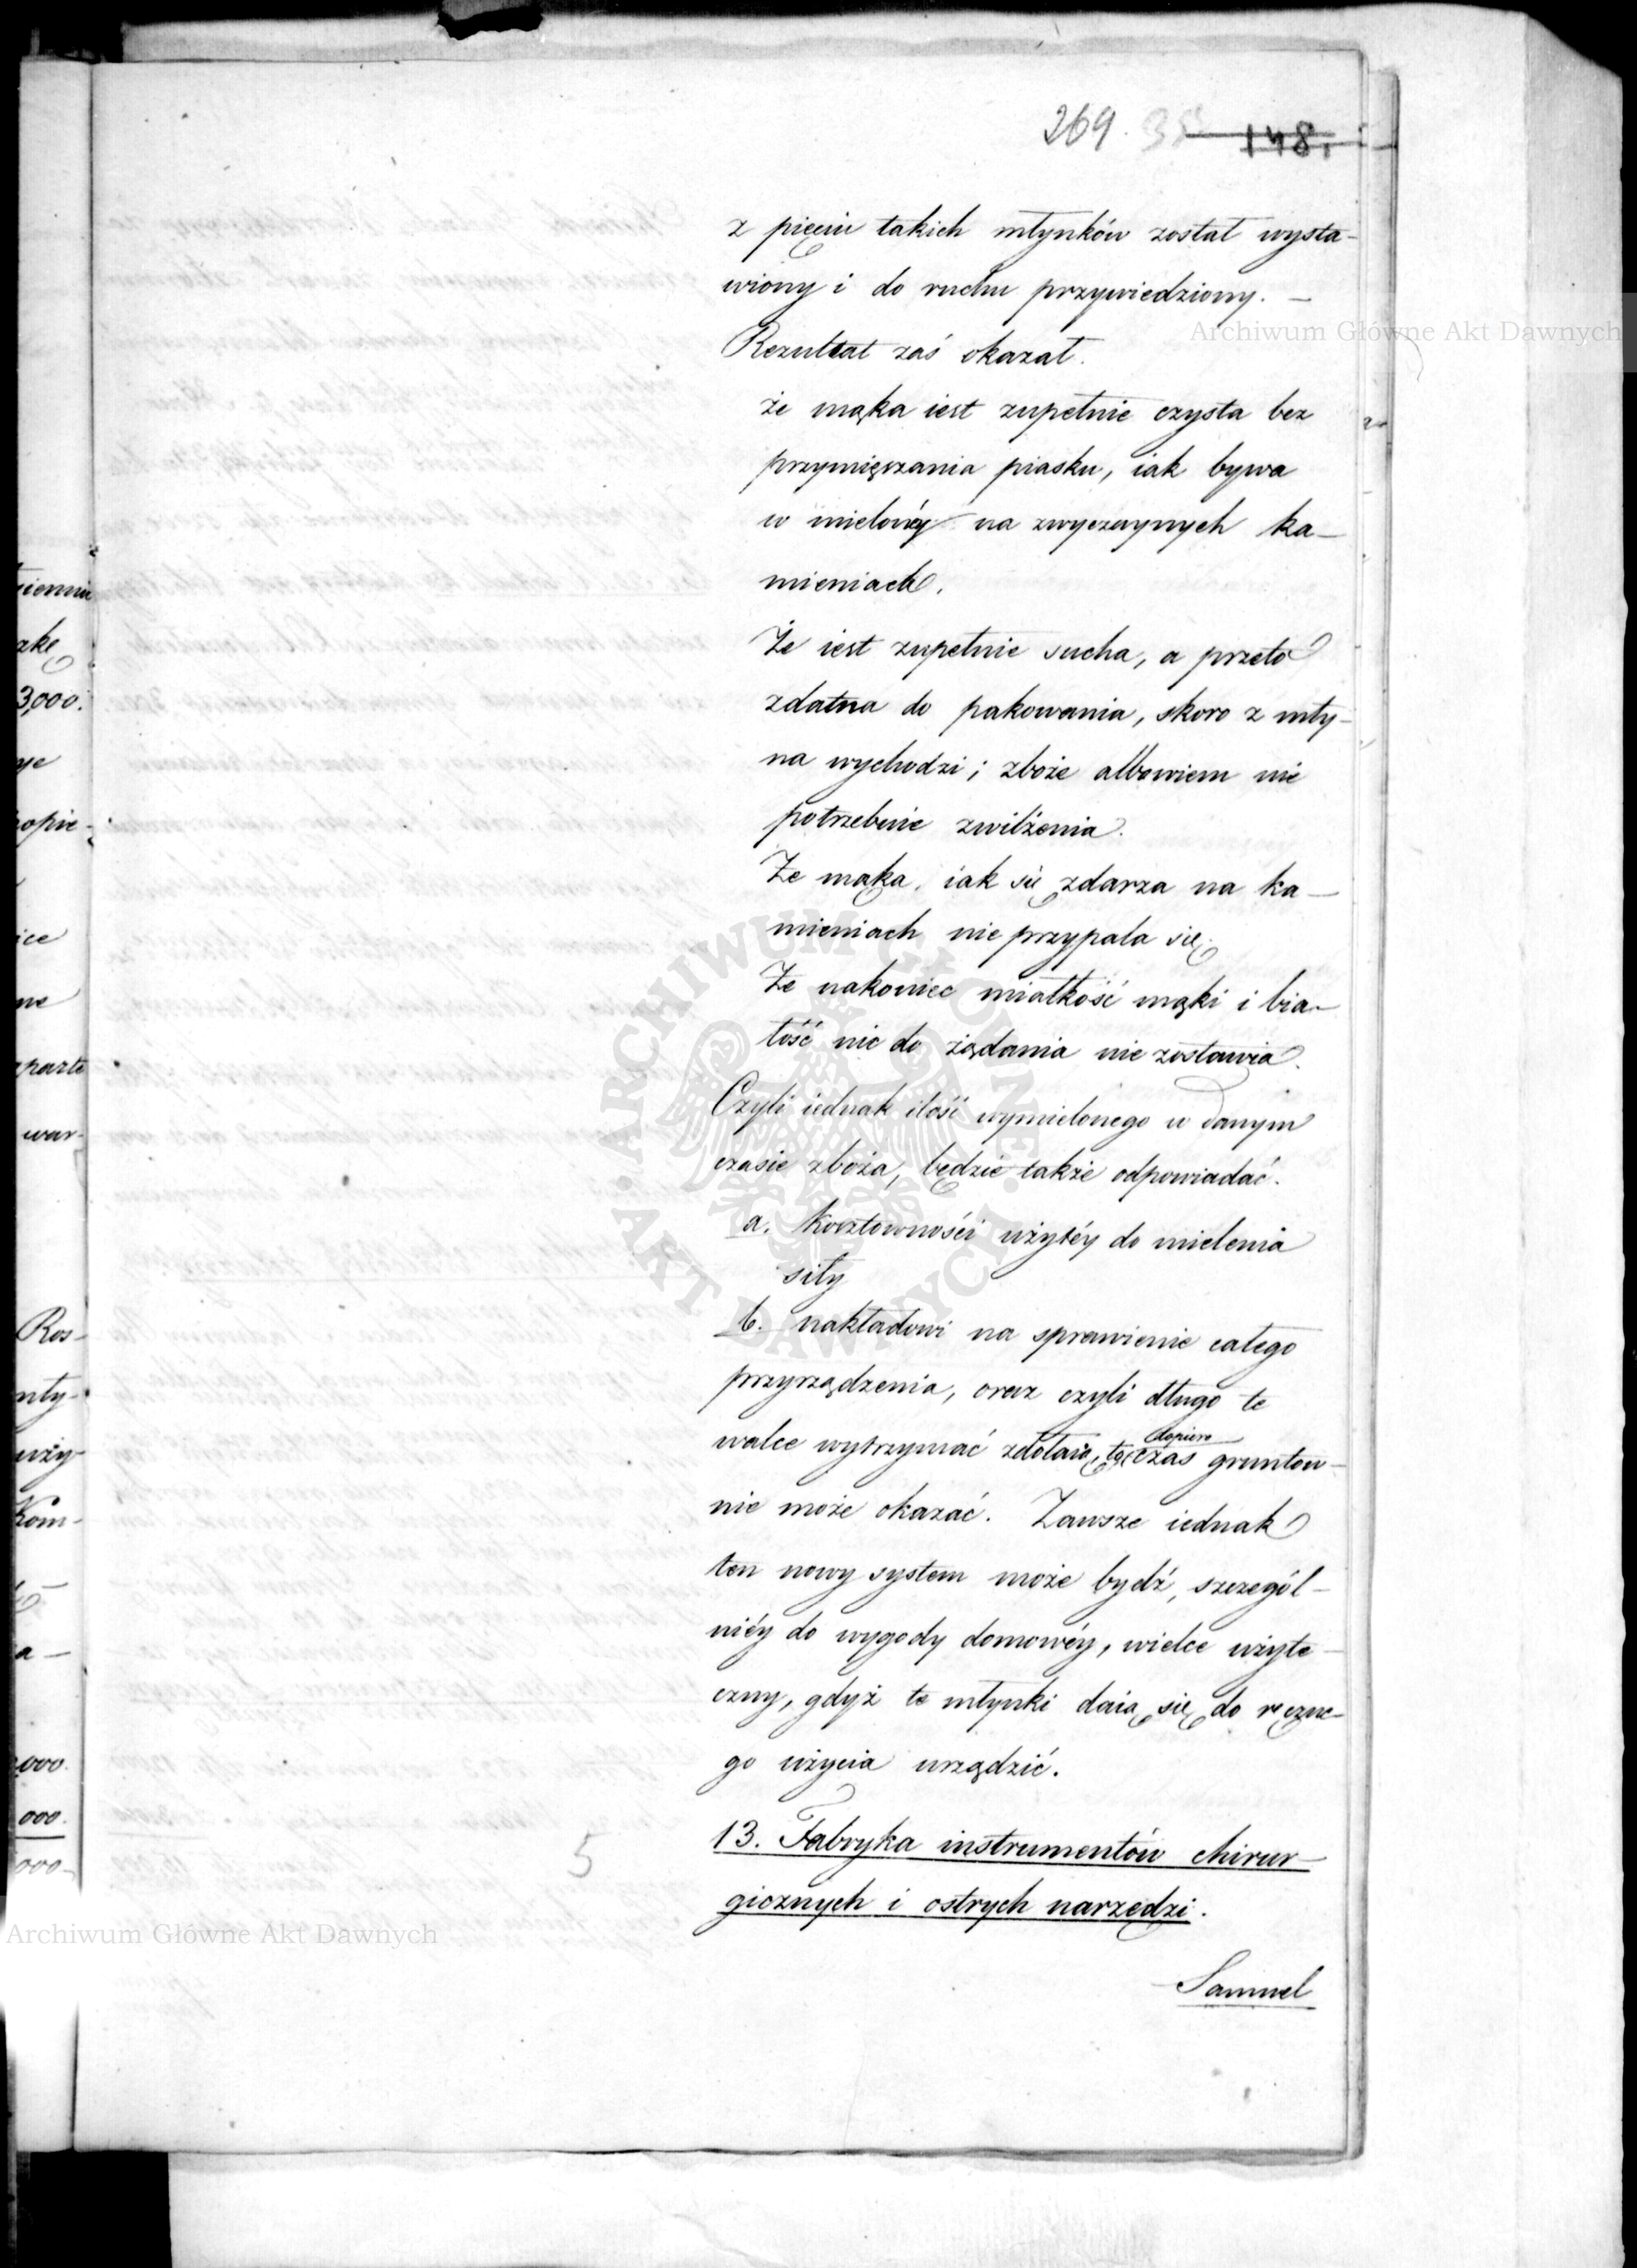 269. 148.
z pięciu takich młynków został wysta-
wiony i do ruchu przywiedziony. —
Rezultat zaś okazał.
że mąka iest zupełnie czysta bez
przymięszania piasku, iak bywa
w mieloney na zwyczaynych ka-
mieniach.
Że iest zupełnie sucha, a przeto
zdatna do pakowania, skoro z mły-
na wychodzi; zboże albowiem nie
potrzebuie zwilżenia.
Że mąka, iak się zdarza na ka-
mieniach nie przypala się.
Że nakoniec miałkość mąki i bia-
łość nic do żądania nie zostawia.
Czyli iednak ilość wymielonego w danym
czasie zboża, będzie także odpowiadać.
a. kosztowności użytéy do mielenia
siły
b. nakładowi na sprawienie całego
przyrządzenia, oraz czyli długo te
dopiero
walce wytrzymać zdołaią, to czas gruntow-
nie może okazać. Zawsze iednak
ten nowy system może bydź, szczegól-
niéy do wygody domowéy, wielce użyte-
czny, gdyż te młynki daią się do ręczne-
go użycia urządzić.
13. Fabryka instrumentów chirur-
gicznych i ostrych narzędzi.
5
Samuel
Archiwum Główne Akt Dawnych
Archiwum Główne Akt Dawnych
ARCHIWUM GŁÓWNE AKT DAWNYCH
3,000.
Ros-
mły-
uży-
Kom-
war-
000.
000.
000-